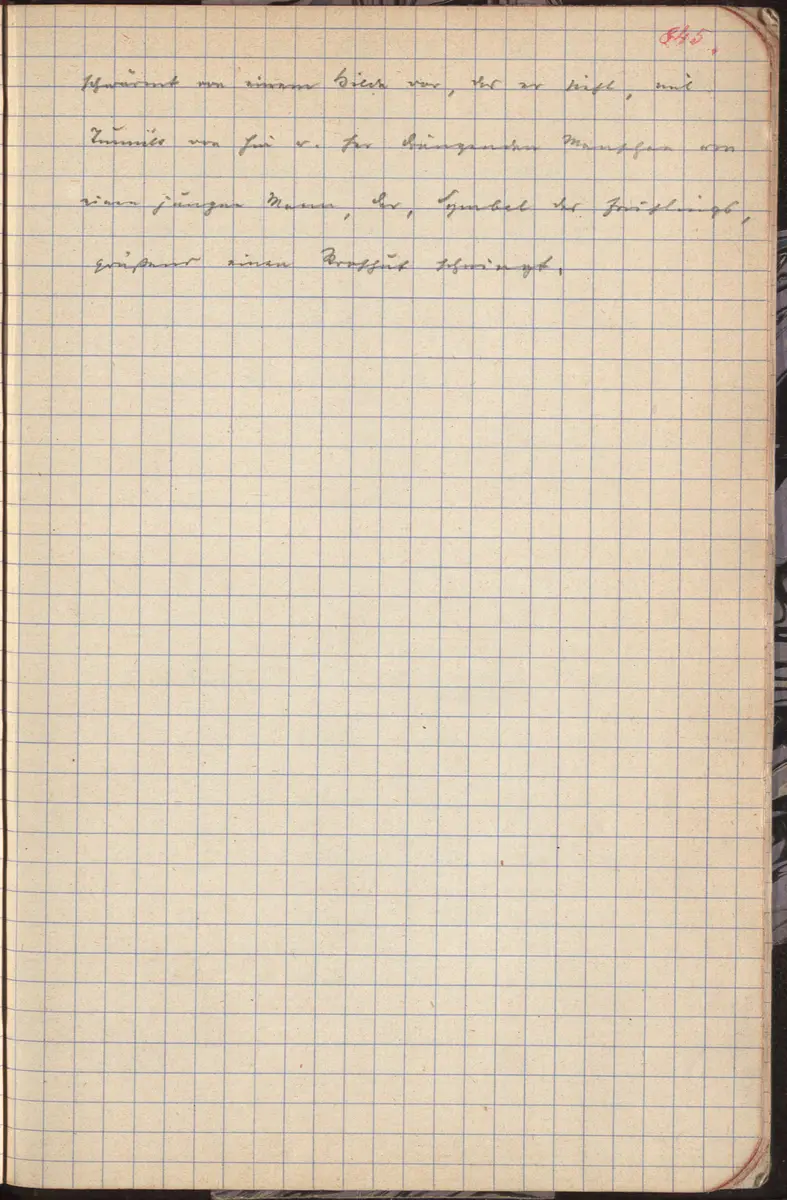 845.
schwärmt von einem Bilde vor, das er sieht, mit
Tumult von hin u. her drängenden Menschen von
einem jungen Mann, der, Symbol des Frühlings,
grüßend einen Strohhut schwingt.